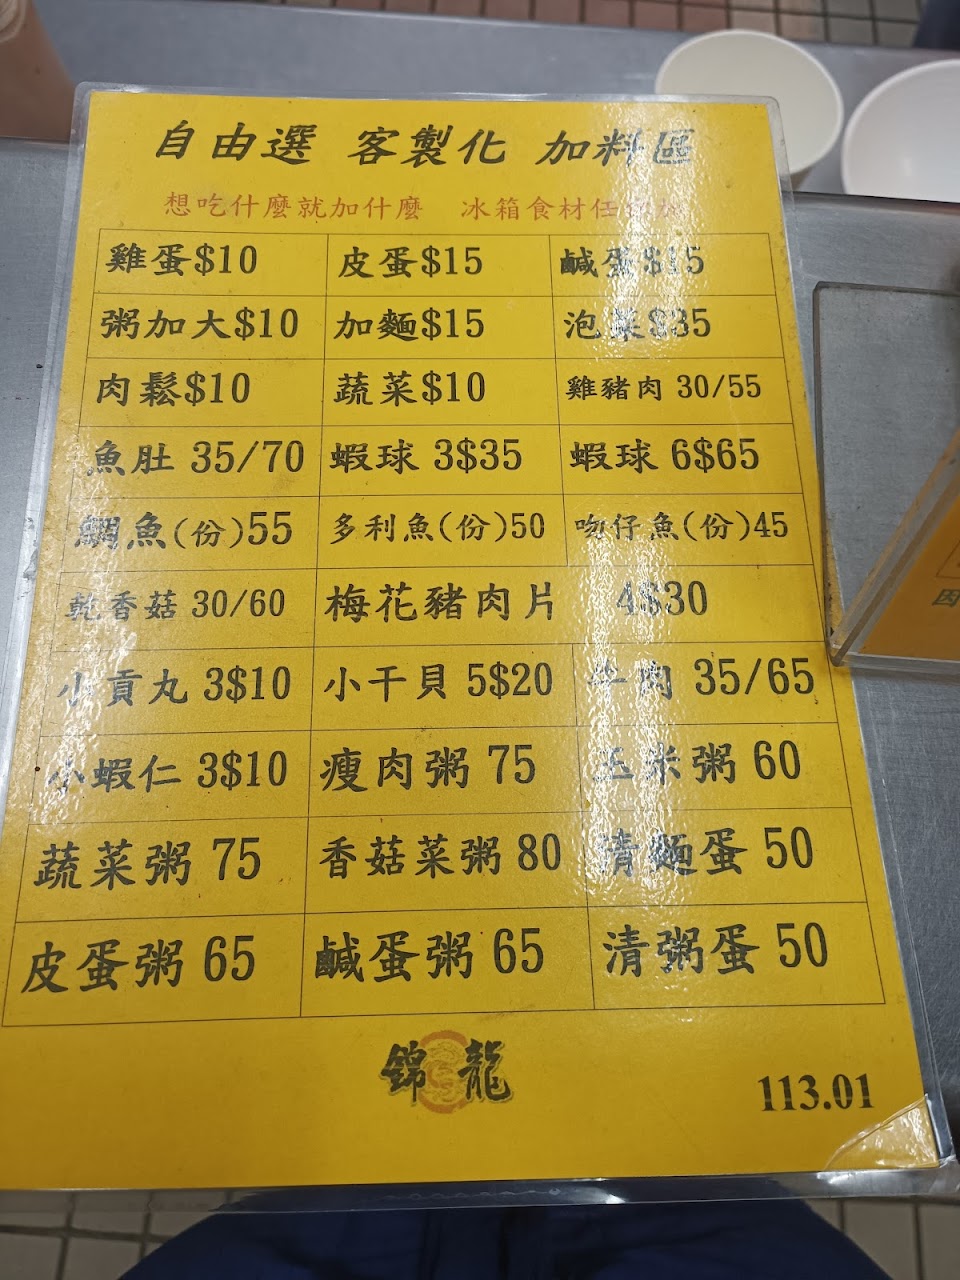 自由選 客製化 加料區
想吃什麼就加什麼 冰箱食材任
雞蛋$10 皮蛋$15 鹹蛋$15
粥加大$10 加麵$15 泡菜$35
肉鬆$10 蔬菜$10 雞豬肉 30/55
魚肚 35/70 蝦球 3$35 蝦球 6$65
鯛魚(份)55 多利魚(份)50 吻仔魚(份)45
乾香菇 30/60 梅花豬肉片 4$30
小貢丸 3$10 小干貝 5$20 牛肉 35/65
小蝦仁 3$10 瘦肉粥 75 玉米粥 60
蔬菜粥 75 香菇菜粥 80 清麵蛋 50
皮蛋粥 65 鹹蛋粥 65 清粥蛋 50
錦龍
113.01